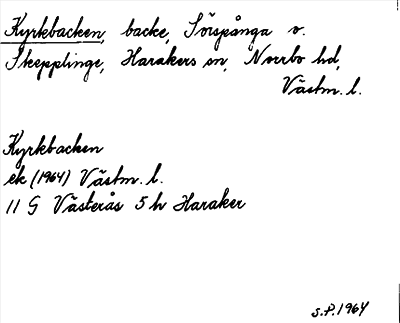 Kyrkbacken, backe, Sörspånga v.
Skepplinge, Harakers sn, Norrbo hd,
Västm. l.
Kyrkbacken
ek (1964) Västm. l.
11 G Västerås 5 h Haraker
S.P. 1964